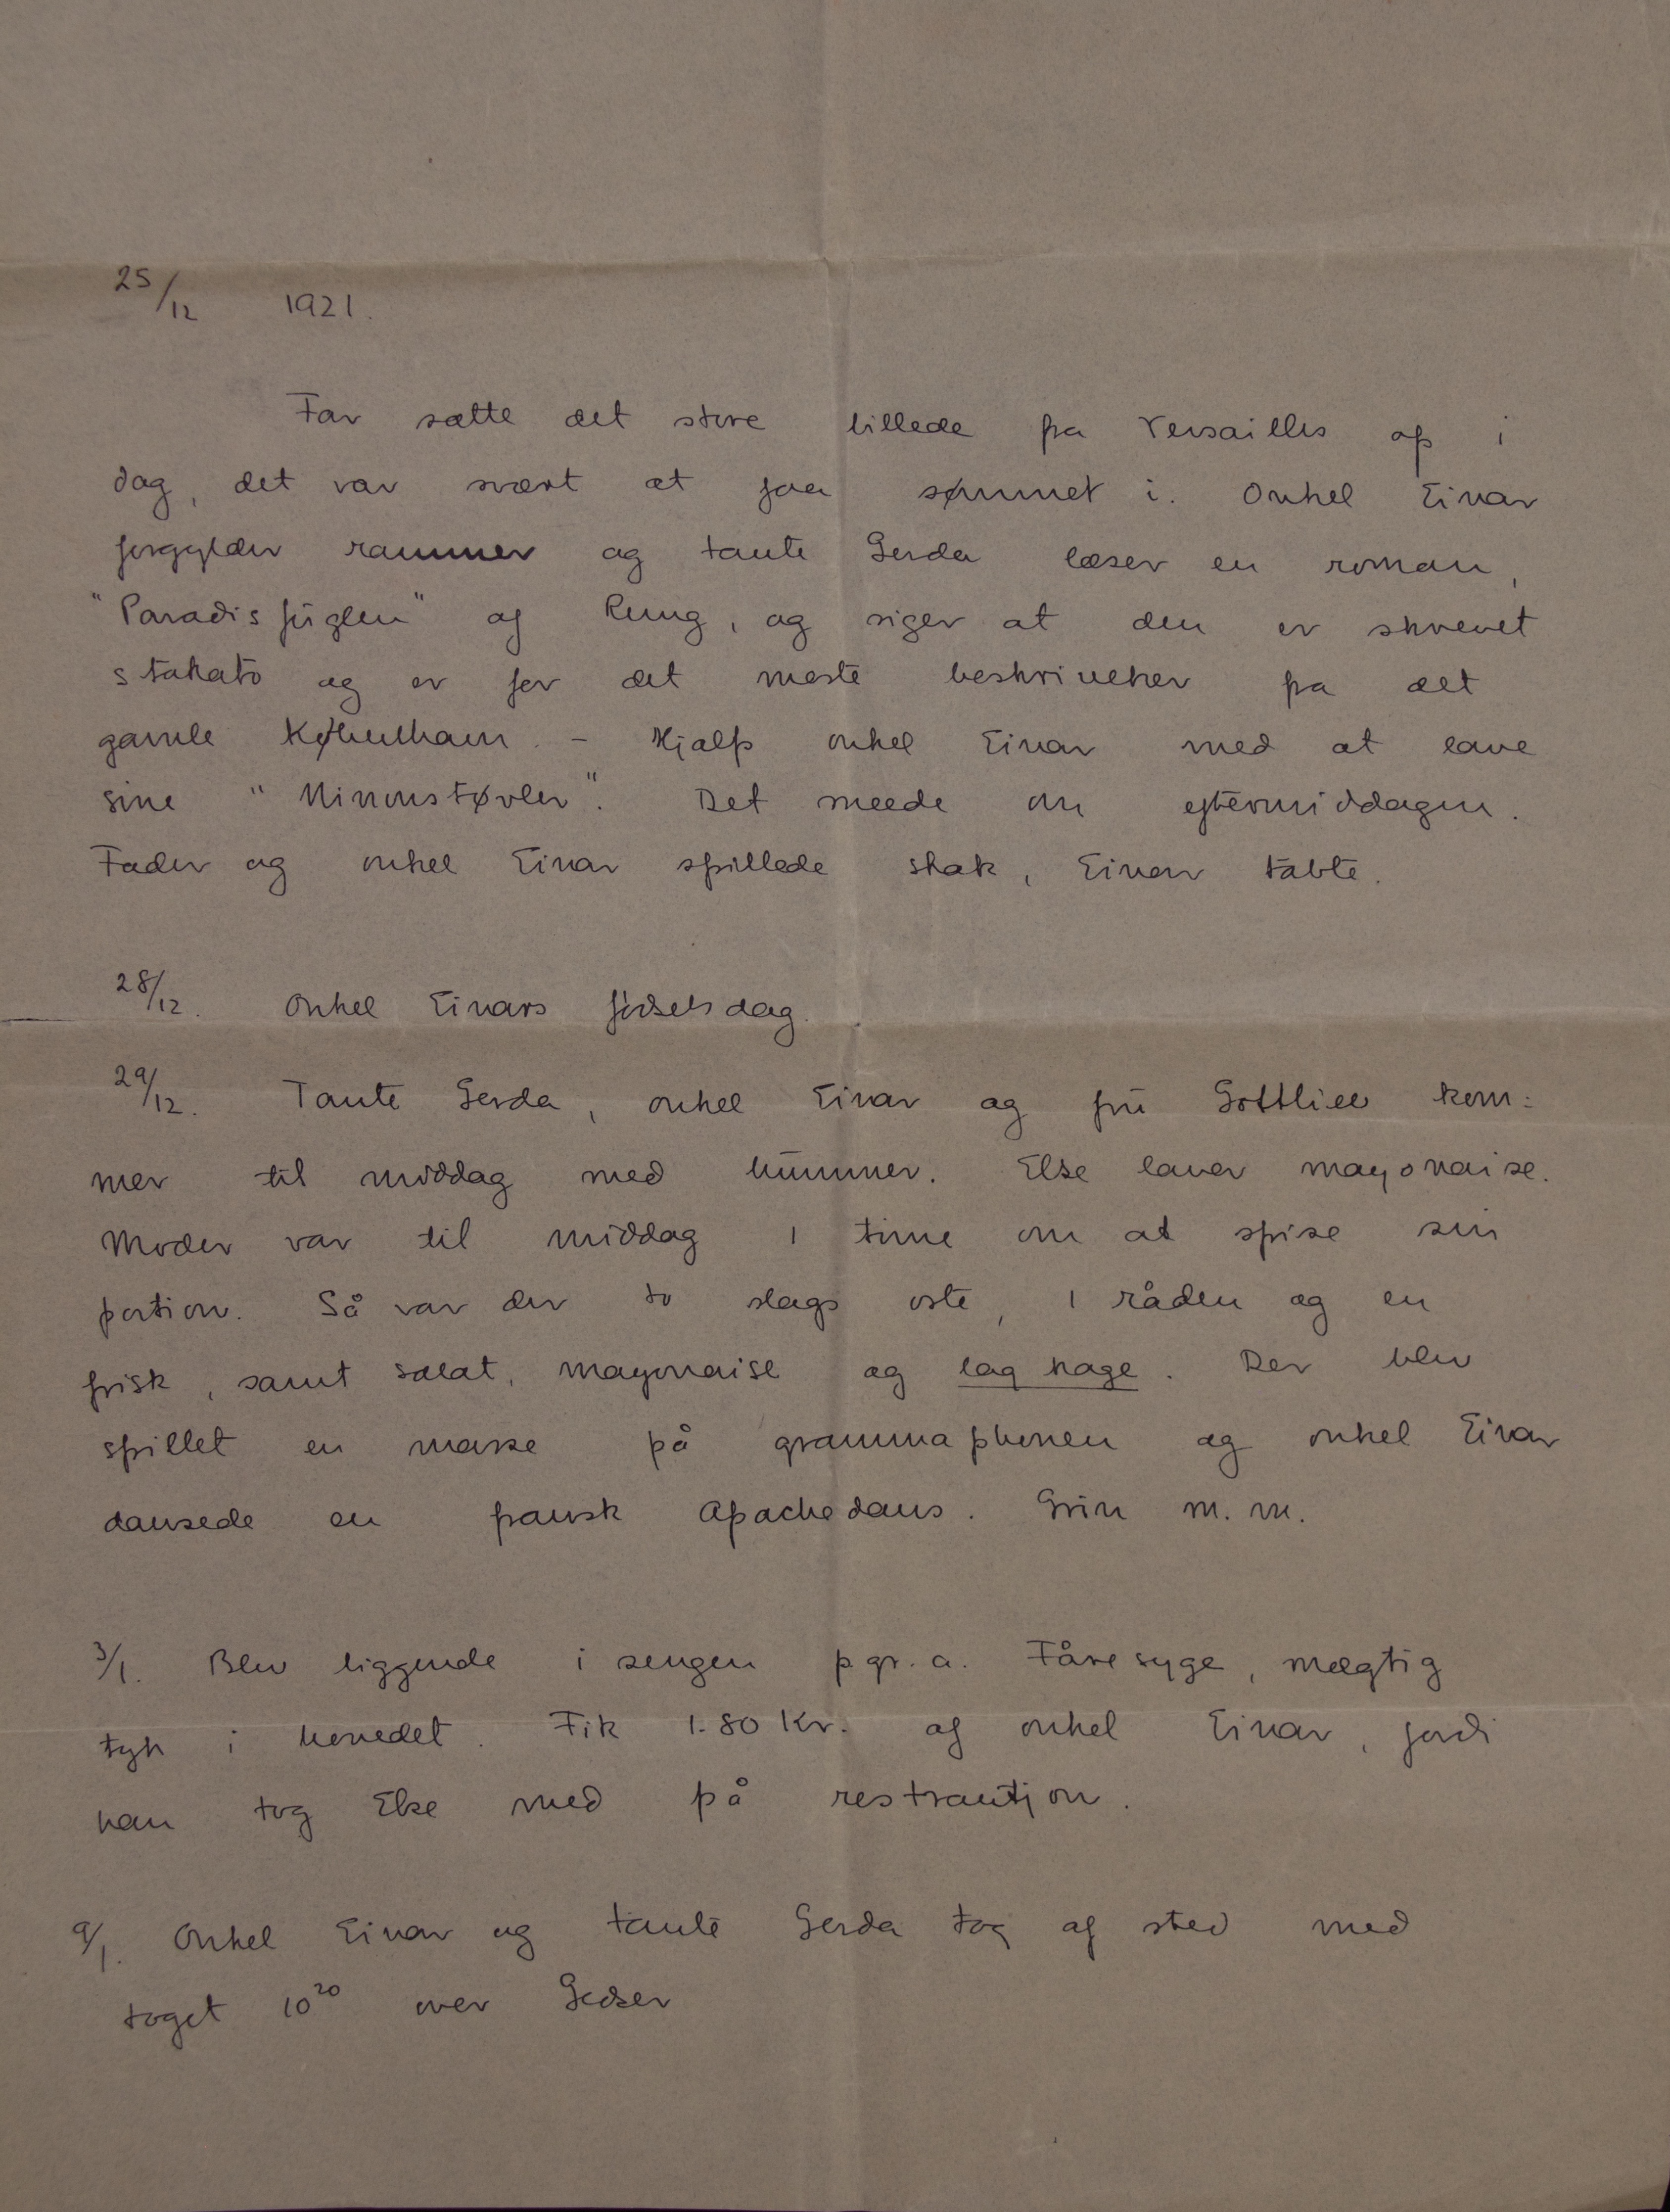 25/12 1921.
Far satte det store billede fra Versailles op i
dag, det var svært at faa sømmet i. Onkel Einar
forgylder rammer og tante Gerda læser en roman,
"Paradisfuglen" af Rung, og siger at den er skrevet
stakato og er for det meste beskrivelser fra det
gamle København. – Hjalp onkel Einar med at lave
sine "Ninonstøvler". Det sneede om eftermiddagen.
Fader og onkel Einar spillede skak, Einar tabte.
28/12. Onkel Einars fødselsdag.
29/12. Tante Gerda, onkel Einar og fru Gottlieb kom:
mer til middag med hummer. Else laver mayonaise.
Moder var til middag 1 time om at spise sin
portion. Så var der to slags oste, 1 råden og en
frisk, samt salat, mayonaise og lag kage. Der blev
spillet en masse på grammaphonen og onkel Einar
dansede en fransk Apachedans. Grin m.m.
3/1. Blev liggende i sengen p.gr.a. Fåresyge, mægtig
tyk i hovedet. Fik 1.80 Kr. af onkel Einar, fordi
han tog Else med på restrautjon.
9/1. Onkel Einar og tante Gerda tog af sted med
toget 10²⁰ over Gedser